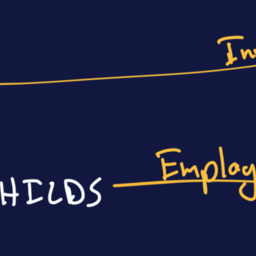 In
HILDS Employ